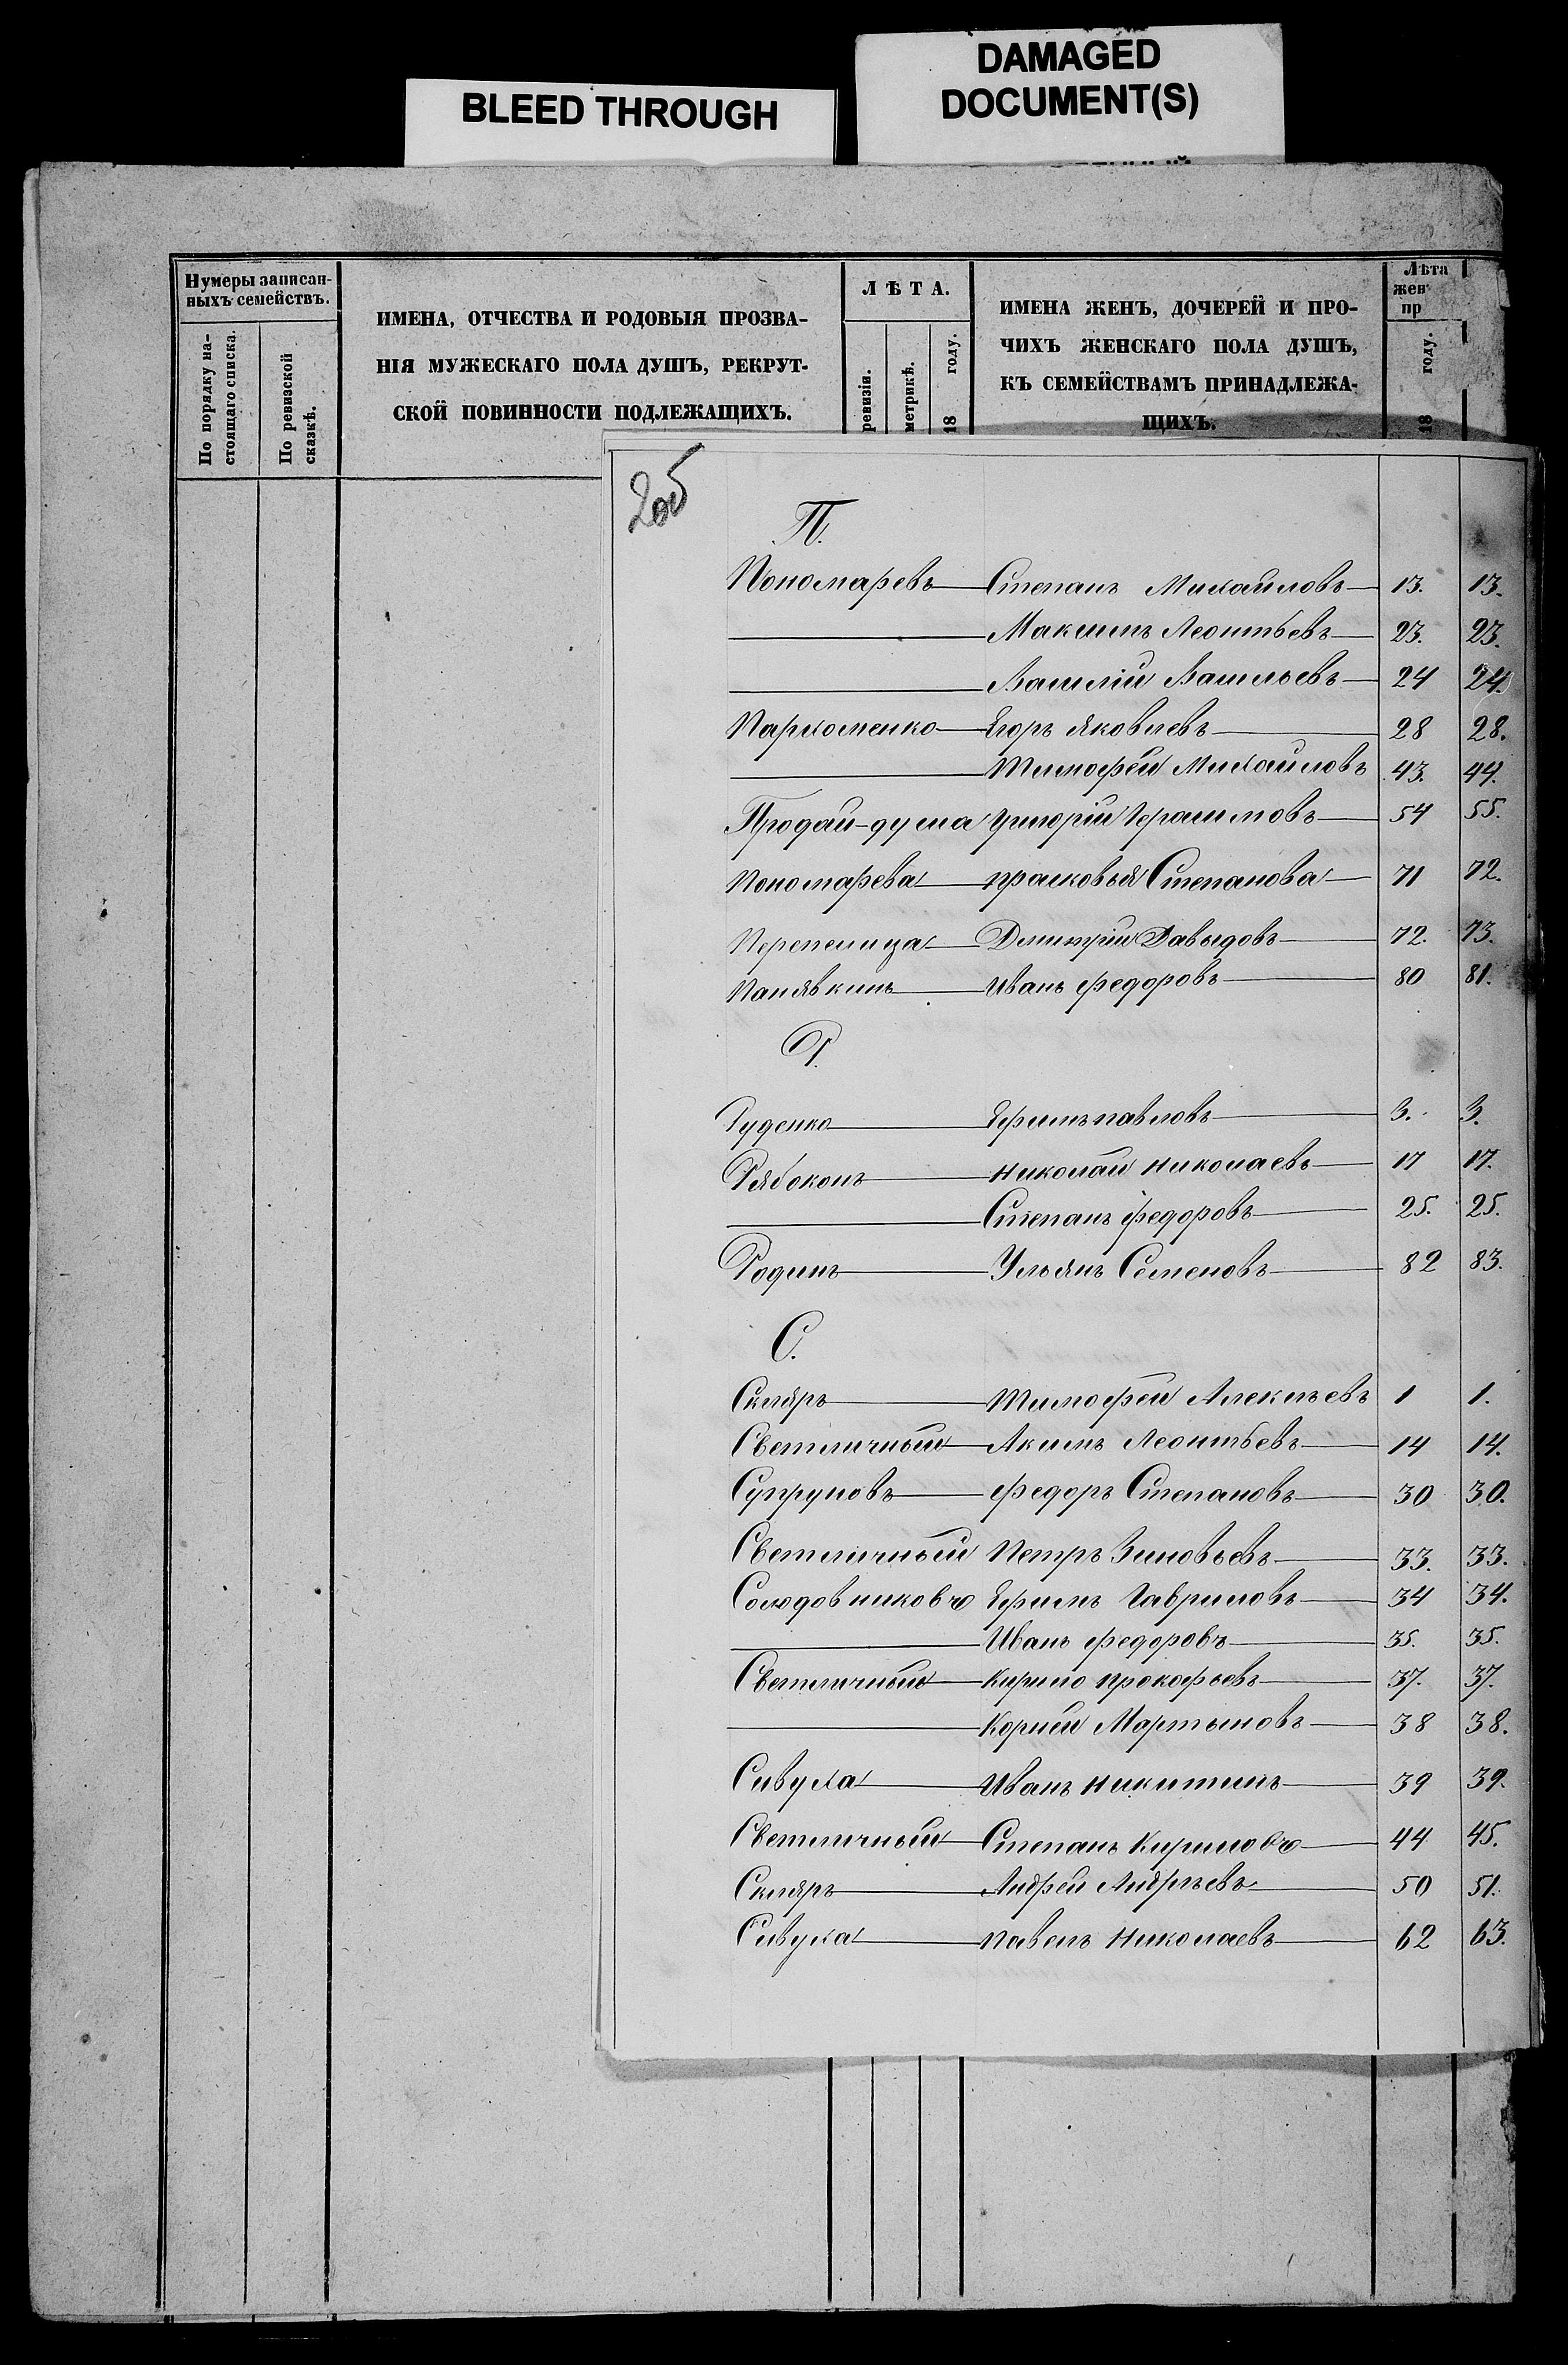 BLEED THROUGH
DAMAGED
DOCUMENT(S)
Нумеры записан-
ныхъ семействъ.
По порядку на-
стоящаго списка.
По ревизской
сказкѣ.
ИМЕНА, ОТЧЕСТВА И РОДОВЫЯ ПРОЗВА-
НІЯ МУЖЕСКАГО ПОЛА ДУШЪ, РЕКРУТ-
СКОЙ ПОВИННОСТИ ПОДЛЕЖАЩИХЪ.
ЛѢТА.
ревизіи.
метрикѣ.
18 году.
ИМЕНА ЖЕНЪ, ДОЧЕРЕЙ И ПРО-
ЧИХЪ ЖЕНСКАГО ПОЛА ДУШЪ,
КЪ СЕМЕЙСТВАМЪ ПРИНАДЛЕЖА-
ЩИХЪ.
Лѣта
жен
пр
18 году.
2об
П.
Пономаревъ Степанъ Михайловъ 13. 13.
Максимъ Леонтьевъ 23. 23.
Василій Васильевъ 24 24.
Пархоменко Егоръ Яковлевъ 28 28.
Тимофей Михайловъ 43. 44.
Продай-душа Григорій Герасимовъ 54 55.
Пономарева прасковья Степанова 71 72.
Перепелица Дмитрій Давыдовъ 72. 73.
Панявкинъ Иванъ федоровъ 80 81.
Р.
Руденко Ефимъ павловъ 3. 3.
Рябоконь николай николаевъ 17 17.
Степанъ федоровъ 25. 25.
Родинъ Ульянъ Семеновъ 82 83.
С.
Скляръ Тимофей Алексѣевъ 1 1.
Светличный Акимъ Леонтьевъ 14 14.
Супруновъ федоръ Степановъ 30 30.
Светличный Петръ Зиновьевъ 33. 33.
Солодовниковъ Ефимъ Гавриловъ 34 34.
Иванъ федоровъ 35. 35.
Светличный Кирило прокофьевъ 37. 37.
Корней Мартыновъ 38 38.
Сивуха Иванъ никитинъ 39 39.
Светличный Степанъ Кириловъ 44 45.
Скляръ Андрей Андрѣевъ 50 51.
Сивуха павелъ николаевъ 62 63.